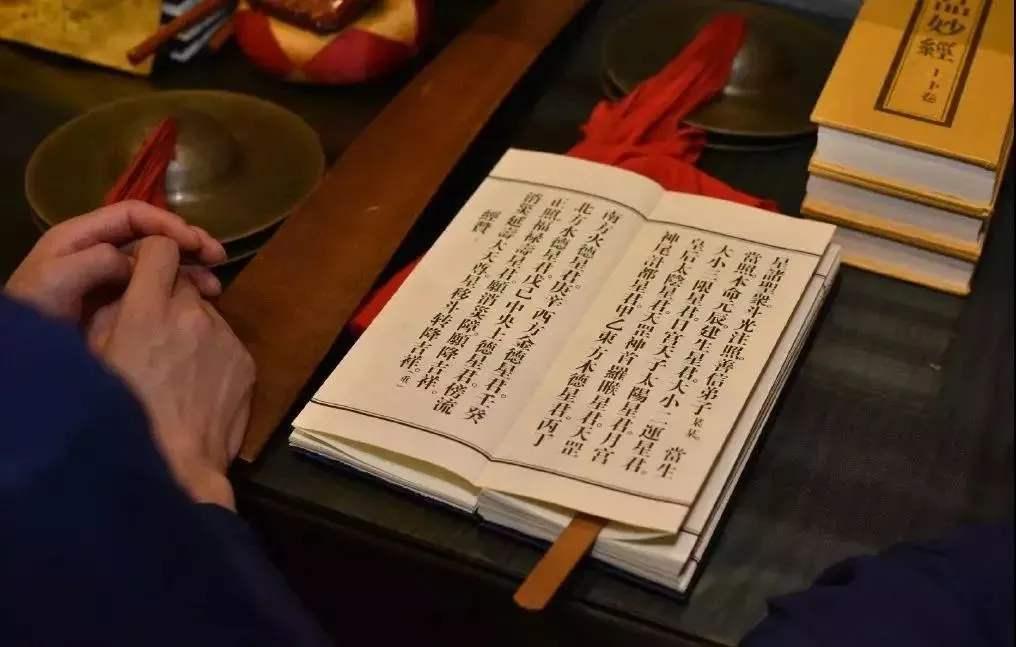 星諸聖衆斗光注照。善信弟子某某。當生
當照。本命元辰建生星君。大小二運星君。
大小三限星君。日宮天子太陽星君。月宮
皇后太陰星君。天罡神首羅睺星君。天罡
神尾計都星君。甲乙東方木德星君。丙丁
南方火德星君。庚辛西方金德星君。壬癸
北方水德星君。戊己中央土德星君。傍流
正照。福祿壽星君。願消災障。願降吉祥。
消災延壽大天尊。星移斗转降吉祥。(重)
經贊
品妙經
上下卷